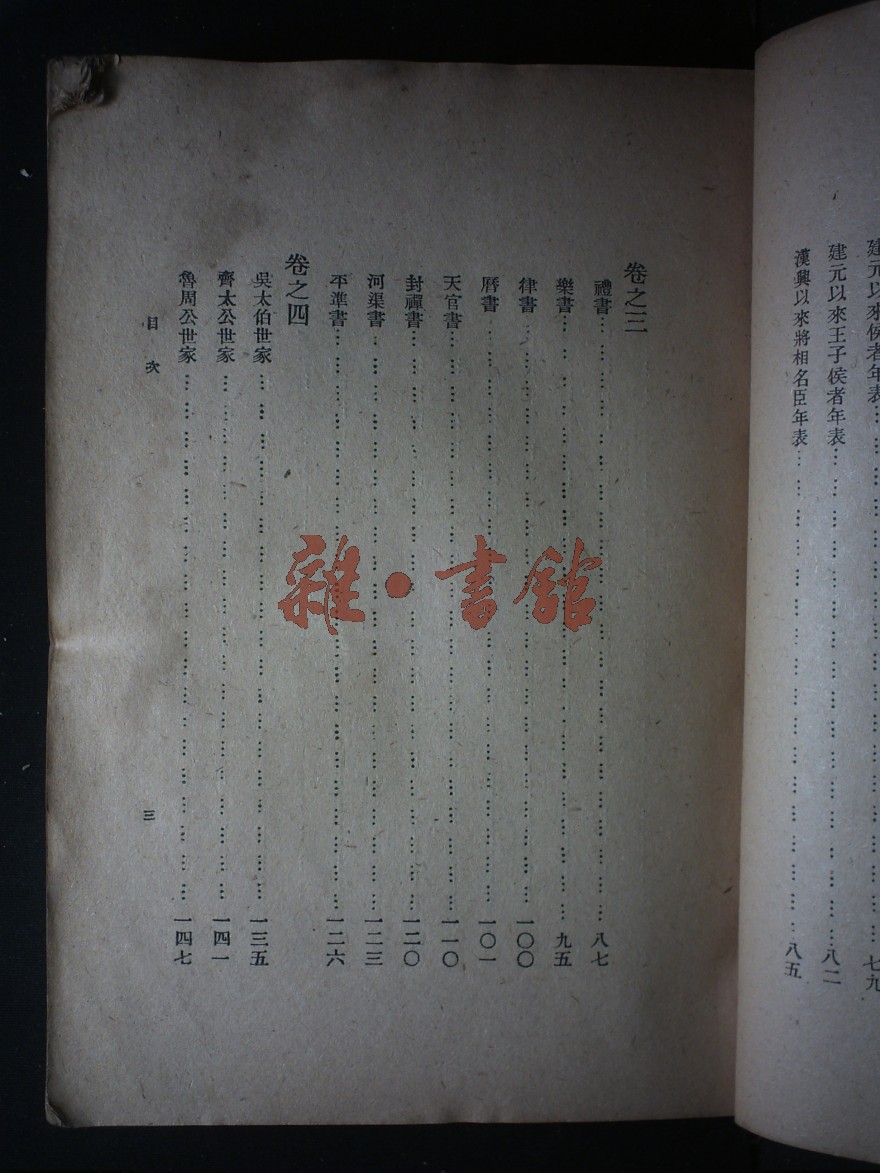 建元以來侯者年表……七九
建元以來王子侯者年表……八二
漢興以來將相名臣年表……八五
卷之三
禮書……八七
樂書……九五
律書……一〇〇
曆書……一〇一
天官書……一一〇
封禪書……一二〇
河渠書……一二三
平準書……一二六
卷之四
吳太伯世家……一三五
齊太公世家……一四一
魯周公世家……一四七
目次
三
雜·書館